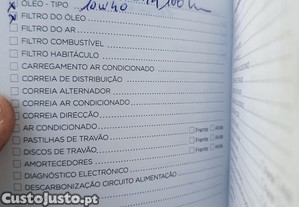 ÓLEO - TIPO 10W40
FILTRO DO ÓLEO
FILTRO DO AR
FILTRO COMBUSTÍVEL
FILTRO HABITÁCULO
CARREGAMENTO AR CONDICIONADO
CORREIA DE DISTRIBUIÇÃO
CORREIA ALTERNADOR
CORREIA AR CONDICIONADO
CORREIA DIRECÇÃO
AR CONDICIONADO
PASTILHAS DE TRAVÃO Frente Atrás
DISCOS DE TRAVÃO Frente Atrás
AMORTECEDORES Frente Atrás
DIAGNÓSTICO ELECTRÓNICO
DESCARBONIZAÇÃO CIRCUITO ALIMENTAÇÃO
CustoJusto.pt